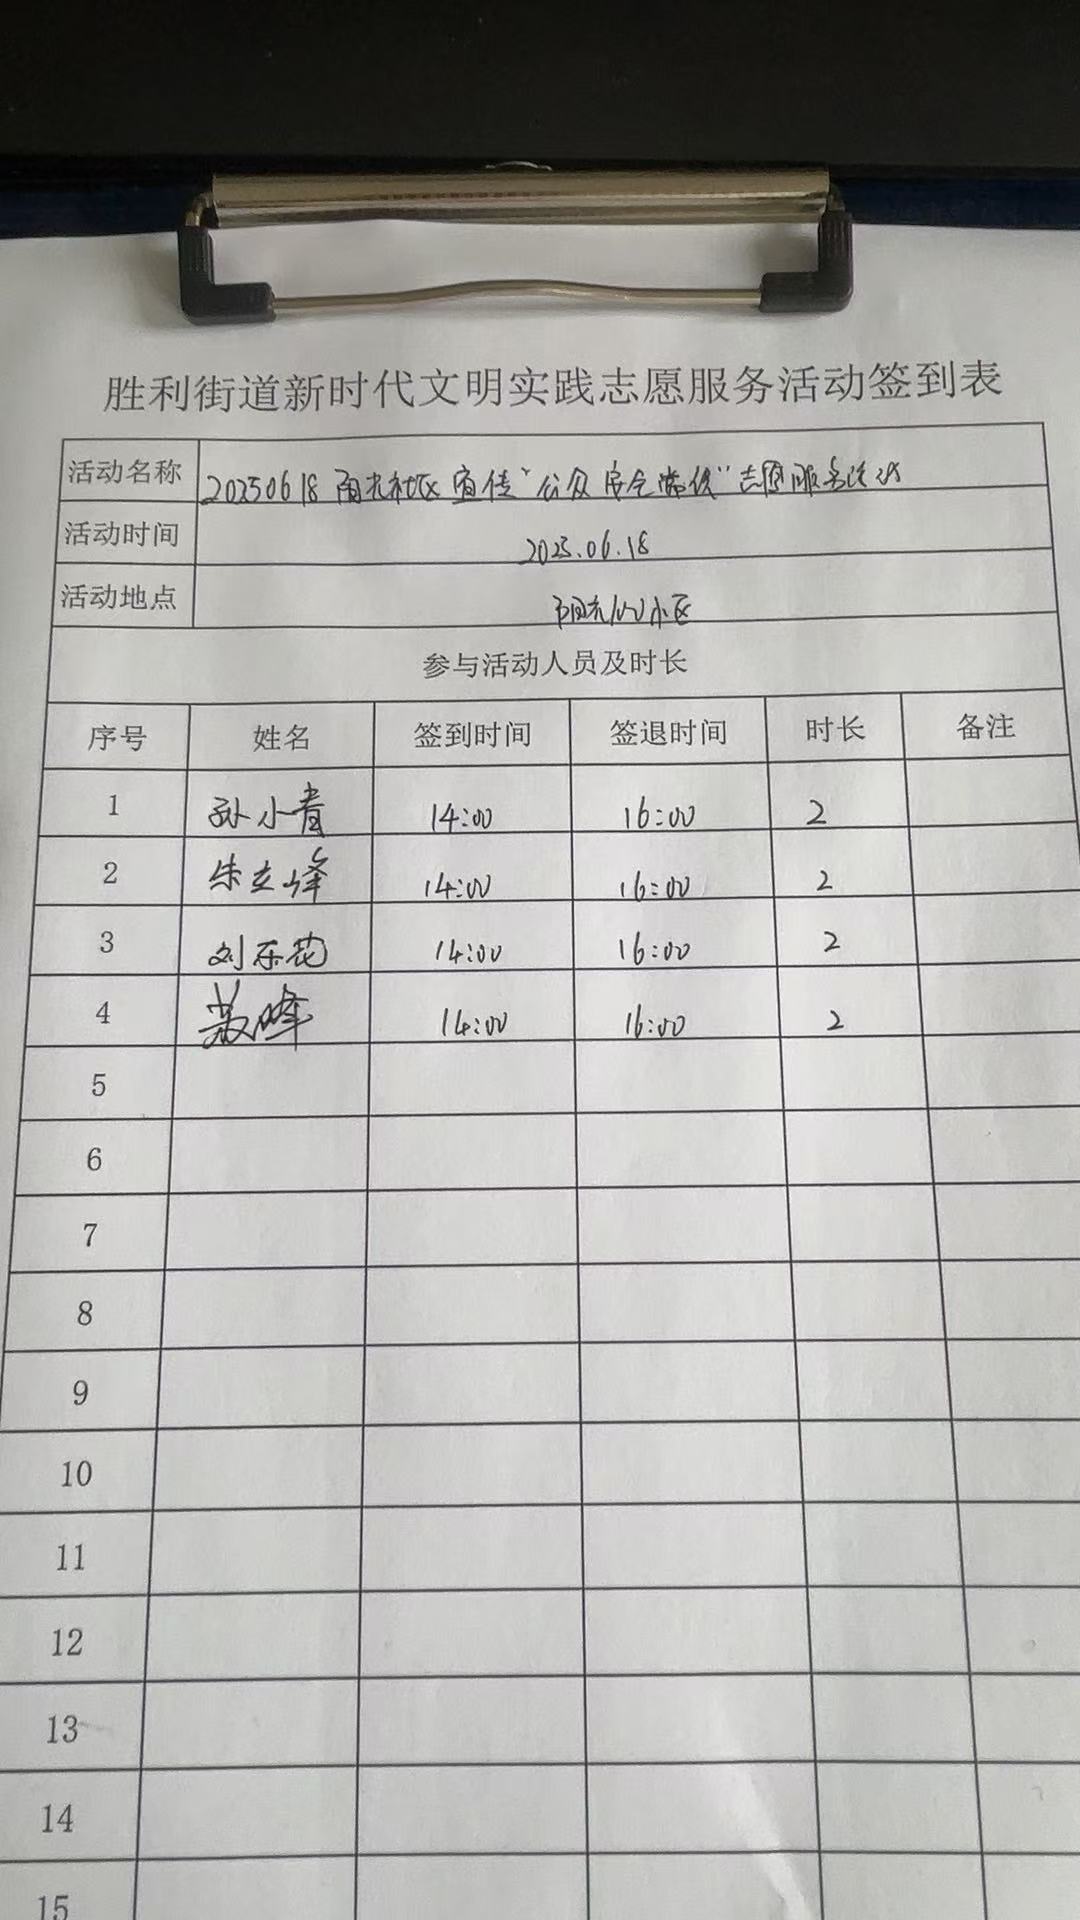 胜利街道新时代文明实践志愿服务活动签到表
活动名称 20250618 阳光社区宣传“公众安全常识”志愿服务活动
活动时间 2025.06.18
活动地点 阳光 小区
参与活动人员及时长
序号 姓名 签到时间 签退时间 时长 备注
1 孙小青 14:00 16:00 2
2 朱立峰 14:00 16:00 2
3 刘乐花 14:00 16:00 2
4 峰 14:00 16:00 2
5
6
7
8
9
10
11
12
13
14
15